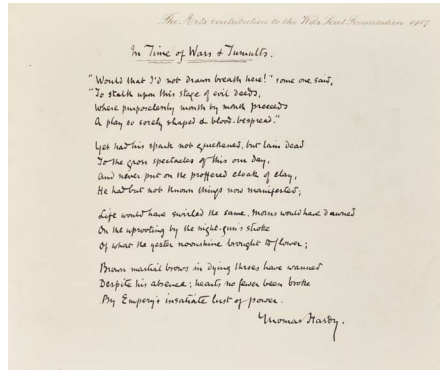 The Arts contribution to the War Seal Foundation 1917.
In Time of Wars & Tumults.
"Would that I'd not drawn breath here!" some one said,
"To stalk upon this stage of evil deeds,
Where purposelessly month by month proceeds
A play so sorely shaped & blood-bespread."
Yet had his spark not quickened, but lain dead
To the gross spectacles of this our day,
And never put on the proffered cloak of clay,
He had but not known things now manifested;
Life would have swirled the same. Morns would have dawned
On the uprooting by the night-gun's stroke
Of what the yester noonshine brought to flower;
Brown martial brows in dying throes have wanned
Despite his absence; hearts no fewer been broke
By Empery's insatiate lust of power.
Thomas Hardy.